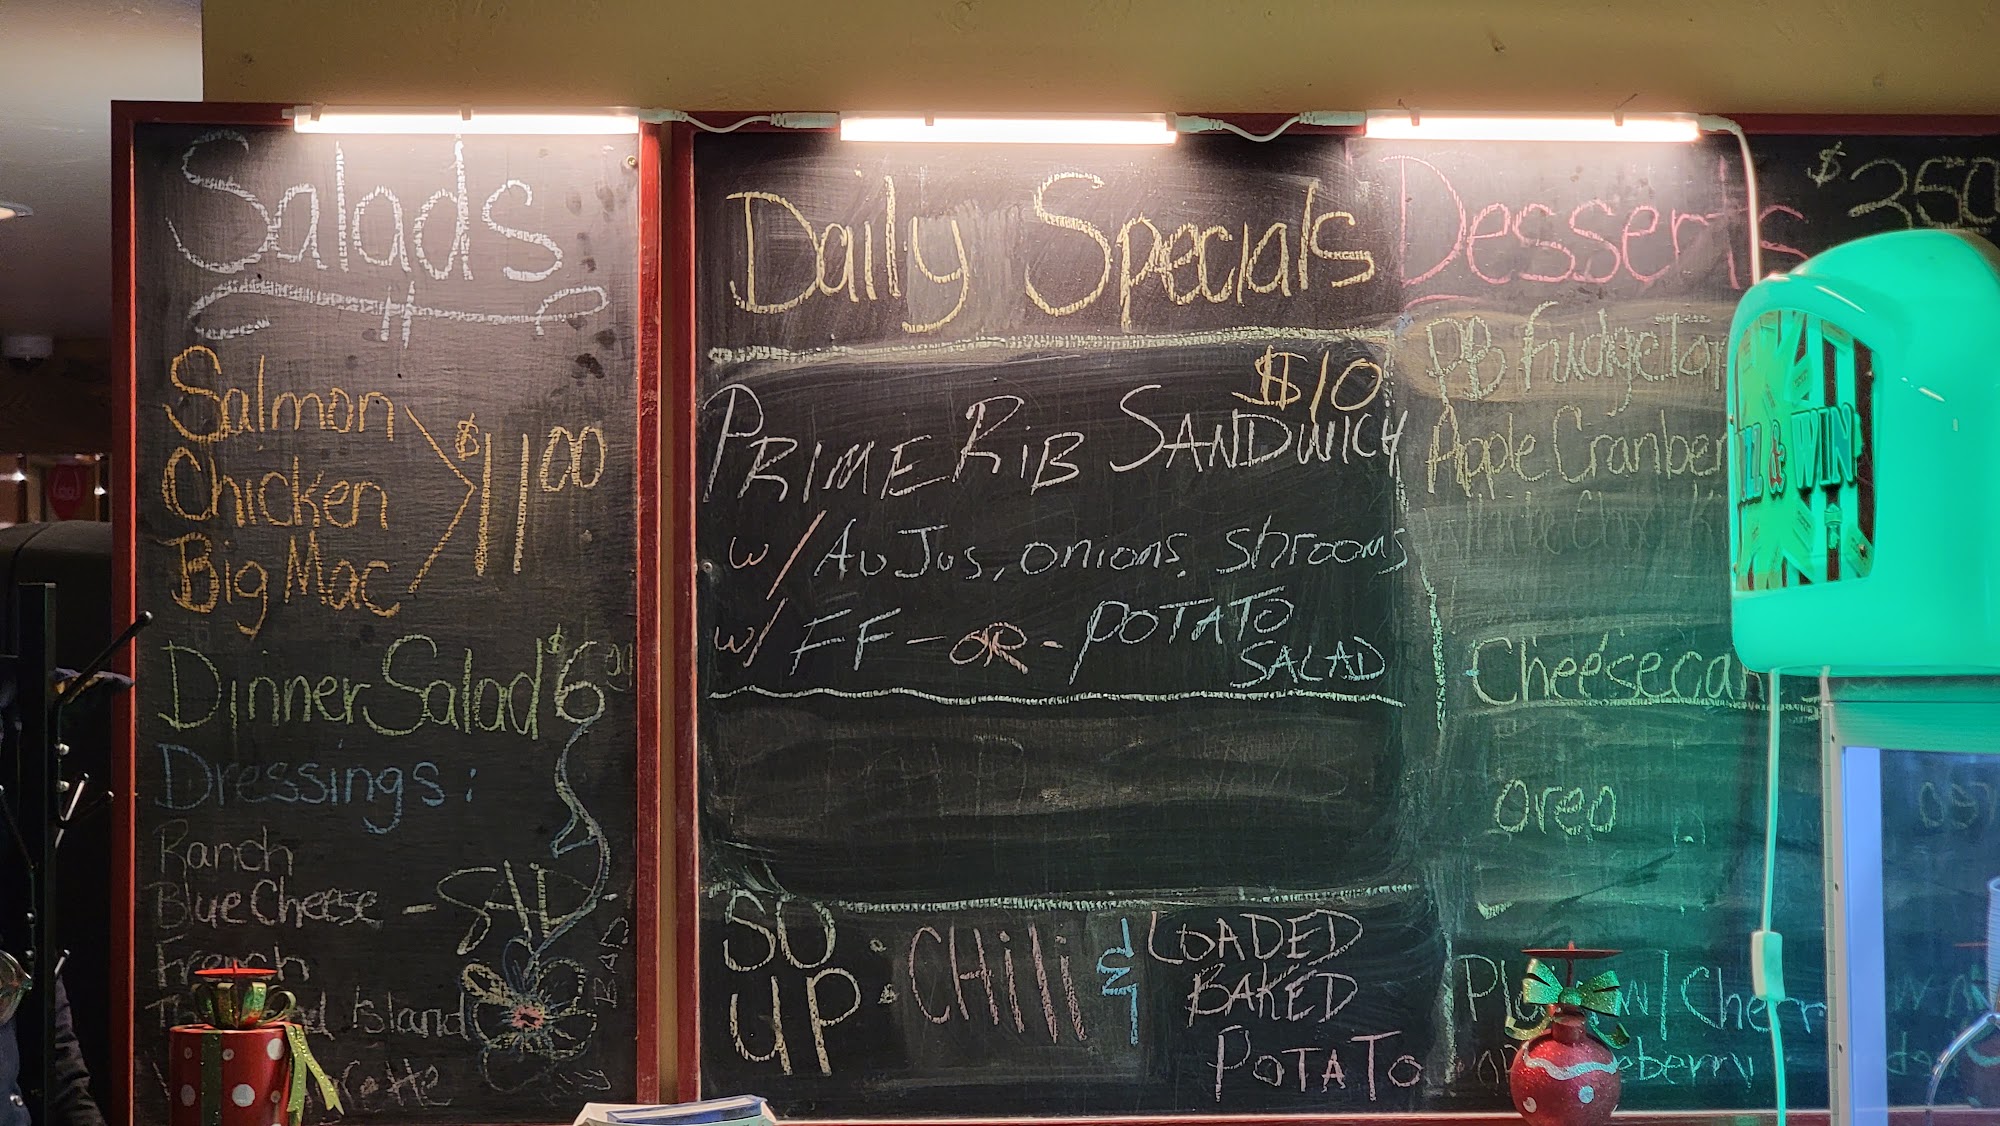 Salads
Salmon
Chicken
Big Mac
$11 00
Dinner Salad $6 00
Dressings:
Ranch
Blue Cheese
French
Island
Daily Specials
$10
PRIME RIB SANDWICH
w/ AU JUS, onions, shrooms
w/ FF - OR - POTATO
SALAD
SOUP: CHili & LOADED
BAKED
POTATO
Desserts $350
PB Fudge
Apple
Cheeseca
oreo
w/ Cher
& WIN